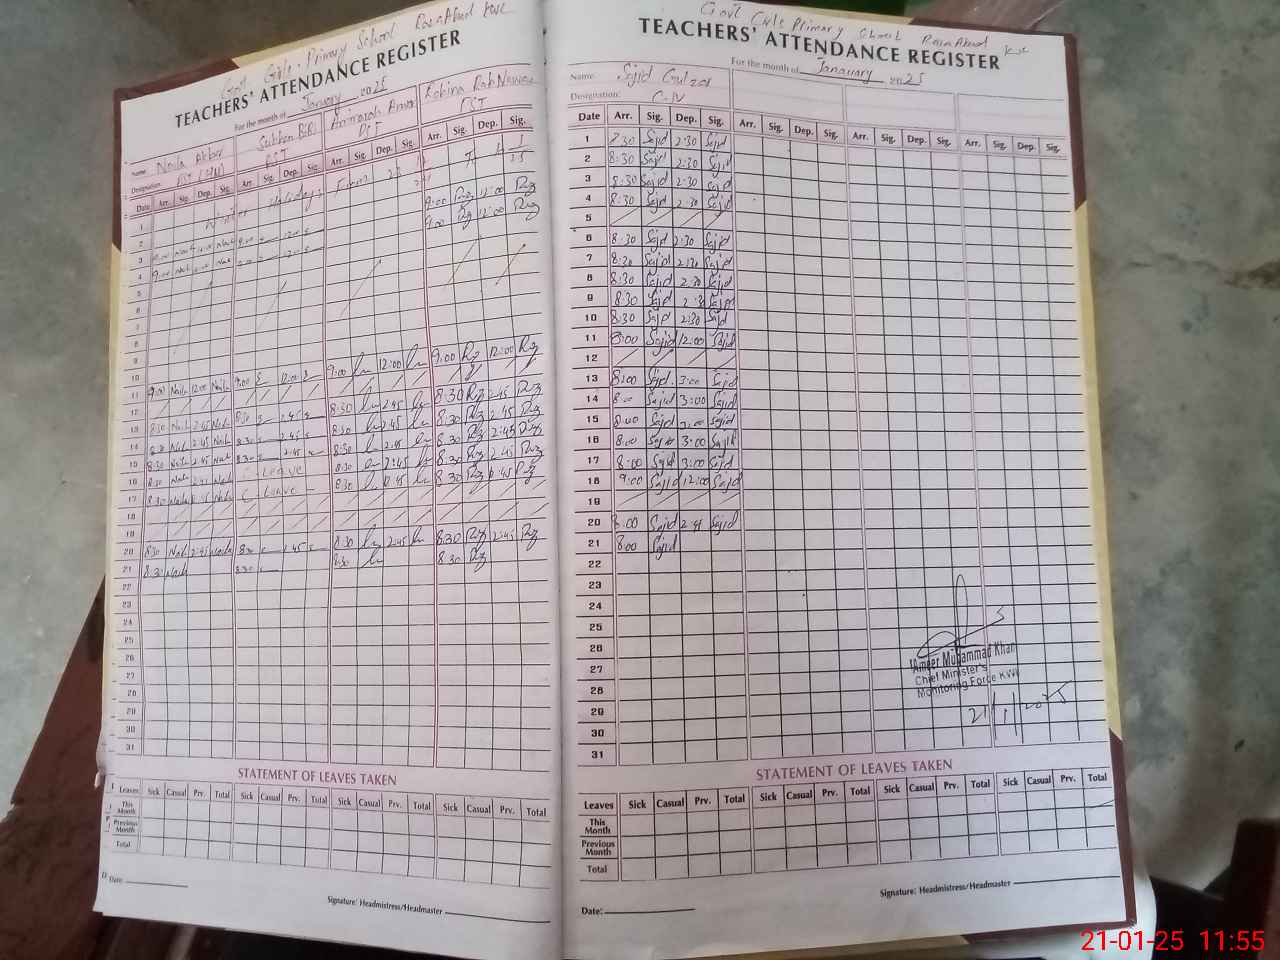 Govt Girls Primary School
TEACHERS' ATTENDANCE REGISTER
For the month of January, 2025
Name Naila Subhan Bibi Robina Rab Nawaz
Designation: PST PST PST
Date Arr. Sig. Dep. Sig. Arr. Sig. Dep. Sig. Arr. Sig. Dep. Sig. Arr. Sig. Dep. Sig.
1 Winter Holidays From
2
3 9:00 12:00
4 9:00 12:00
5
6
7
8
9
10
11 9:00 Naila 12:00 Naila 9:00 12:00 9:00 12:00 9:00 Rz 12:00 Rz
12
13 8:30 Naila 2:45 Naila 8:30 2:45 8:30 2:45 8:30 Rz 2:45 Rz
14 8:30 Naila 2:45 Naila 8:30 2:45 8:30 2:45 8:30 Rz 2:45 Rz
15 8:30 Naila 2:45 Naila 8:30 2:45 8:30 2:45 8:30 Rz 2:45 Rz
16 8:30 Naila 2:45 Naila C Leave 8:30 2:45 8:30 Rz 2:45 Rz
17 8:30 Naila 2:45 Naila C Leave 8:30 2:45 8:30 Rz 2:45 Rz
18
19
20 8:30 Naila 2:45 Naila 8:30 2:45 8:30 2:45 8:30 Rz 2:45 Rz
21 8:30 Naila 8:30 8:30 8:30 Rz
22
23
24
25
26
27
28
29
30
31
STATEMENT OF LEAVES TAKEN
Leaves Sick Casual Prv. Total Sick Casual Prv. Total Sick Casual Prv. Total Sick Casual Prv. Total
This Month
Previous Month
Total
Date:
Signature: Headmistress/Headmaster
Govt Girls Primary School
TEACHERS' ATTENDANCE REGISTER
For the month of Janauary 2025
Name: Sajid Gulzar
Designation: C-IV
Date Arr. Sig. Dep. Sig. Arr. Sig. Dep. Sig. Arr. Sig. Dep. Sig. Arr. Sig. Dep. Sig.
1 8:30 Sajid 2:30 Sajid
2 8:30 Sajid 2:30 Sajid
3 8:30 Sajid 2:30 Sajid
4 8:30 Sajid 2:30 Sajid
5
6 8:30 Sajid 2:30 Sajid
7 8:30 Sajid 2:30 Sajid
8 8:30 Sajid 2:30 Sajid
9 8:30 Sajid 2:30 Sajid
10 8:30 Sajid 2:30 Sajid
11 Sajid 12:00 Sajid
12
13 8:00 Sajid 3:00 Sajid
14 8:00 Sajid 3:00 Sajid
15 8:00 Sajid 3:00 Sajid
16 8:00 Sajid 3:00 Sajid
17 8:00 Sajid 3:00 Sajid
18 9:00 Sajid 12:00 Sajid
19
20 8:00 Sajid 2:45 Sajid
21 8:00 Sajid
22
23
24
25
26
27
28
29
30
31
Ameer Muhammad Khan
Chief Minister's
Monitoring Force KWL
21/1/2025
STATEMENT OF LEAVES TAKEN
Leaves Sick Casual Prv. Total Sick Casual Prv. Total Sick Casual Prv. Total Sick Casual Prv. Total
This Month
Previous Month
Total
Date:
Signature: Headmistress/Headmaster
21-01-25 11:55